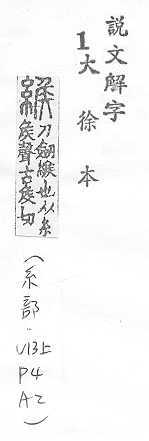 説文解字
1大徐本
緱
刀劒緱也从糸
矦聲古矦切
(糸部.
V13上
P4
A2)